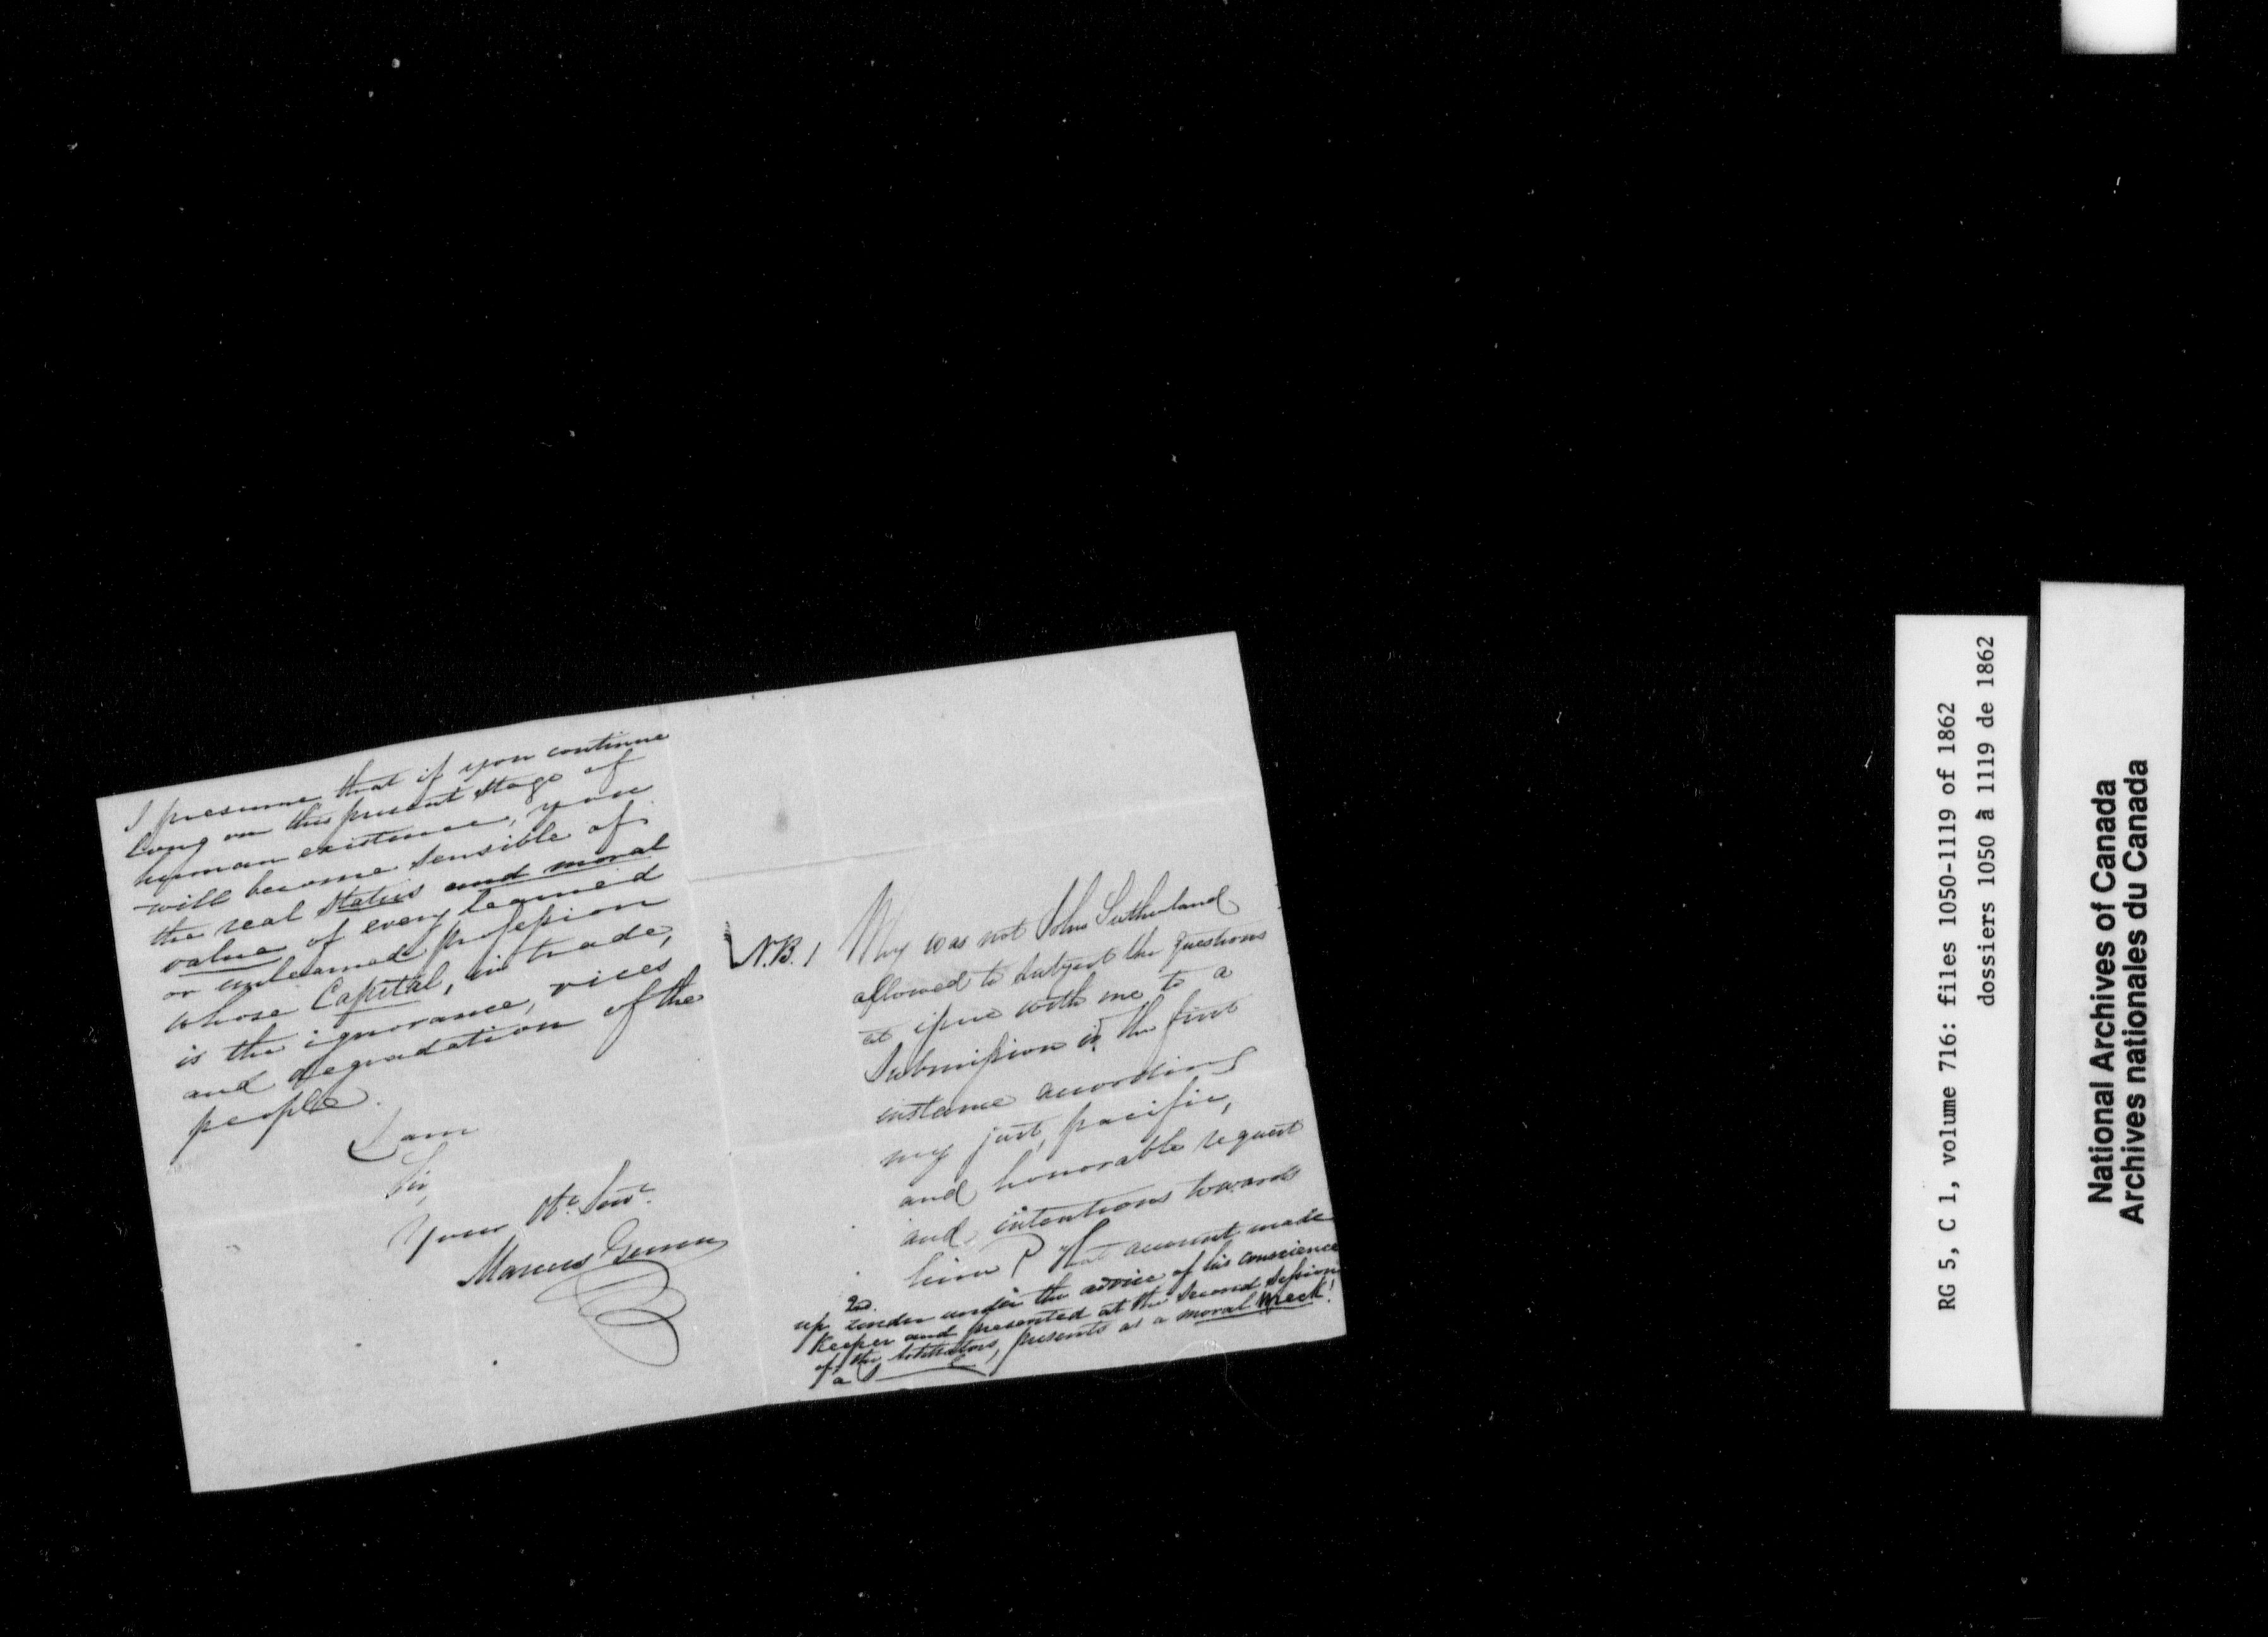 I presume that if you continue
long on this present stage of
human existence, you
will become sensible of
the real status and moral
value of every learned
or unlearned profession
whose Capital, in trade,
is the ignorance, vices
and degradation of the
people.
I am
Sir,
Your Ob.t Serv.t
Marcus Gunn
N.B. 1 Why was not John Sutherland
allowed to subject the questions
at issue with me to a
Submission in the first
instance according
my just, pacific,
and honorable request
and intentions towards
him? That account made
2nd.
up under under the advice of his conscience
Keeper and presented at the second session
of the Arbitrators, presents as a moral wreck!
a
RG 5, C 1, volume 716: files 1050-1119 of 1862
dossiers 1050 à 1119 de 1862
National Archives of Canada
Archives nationales du Canada